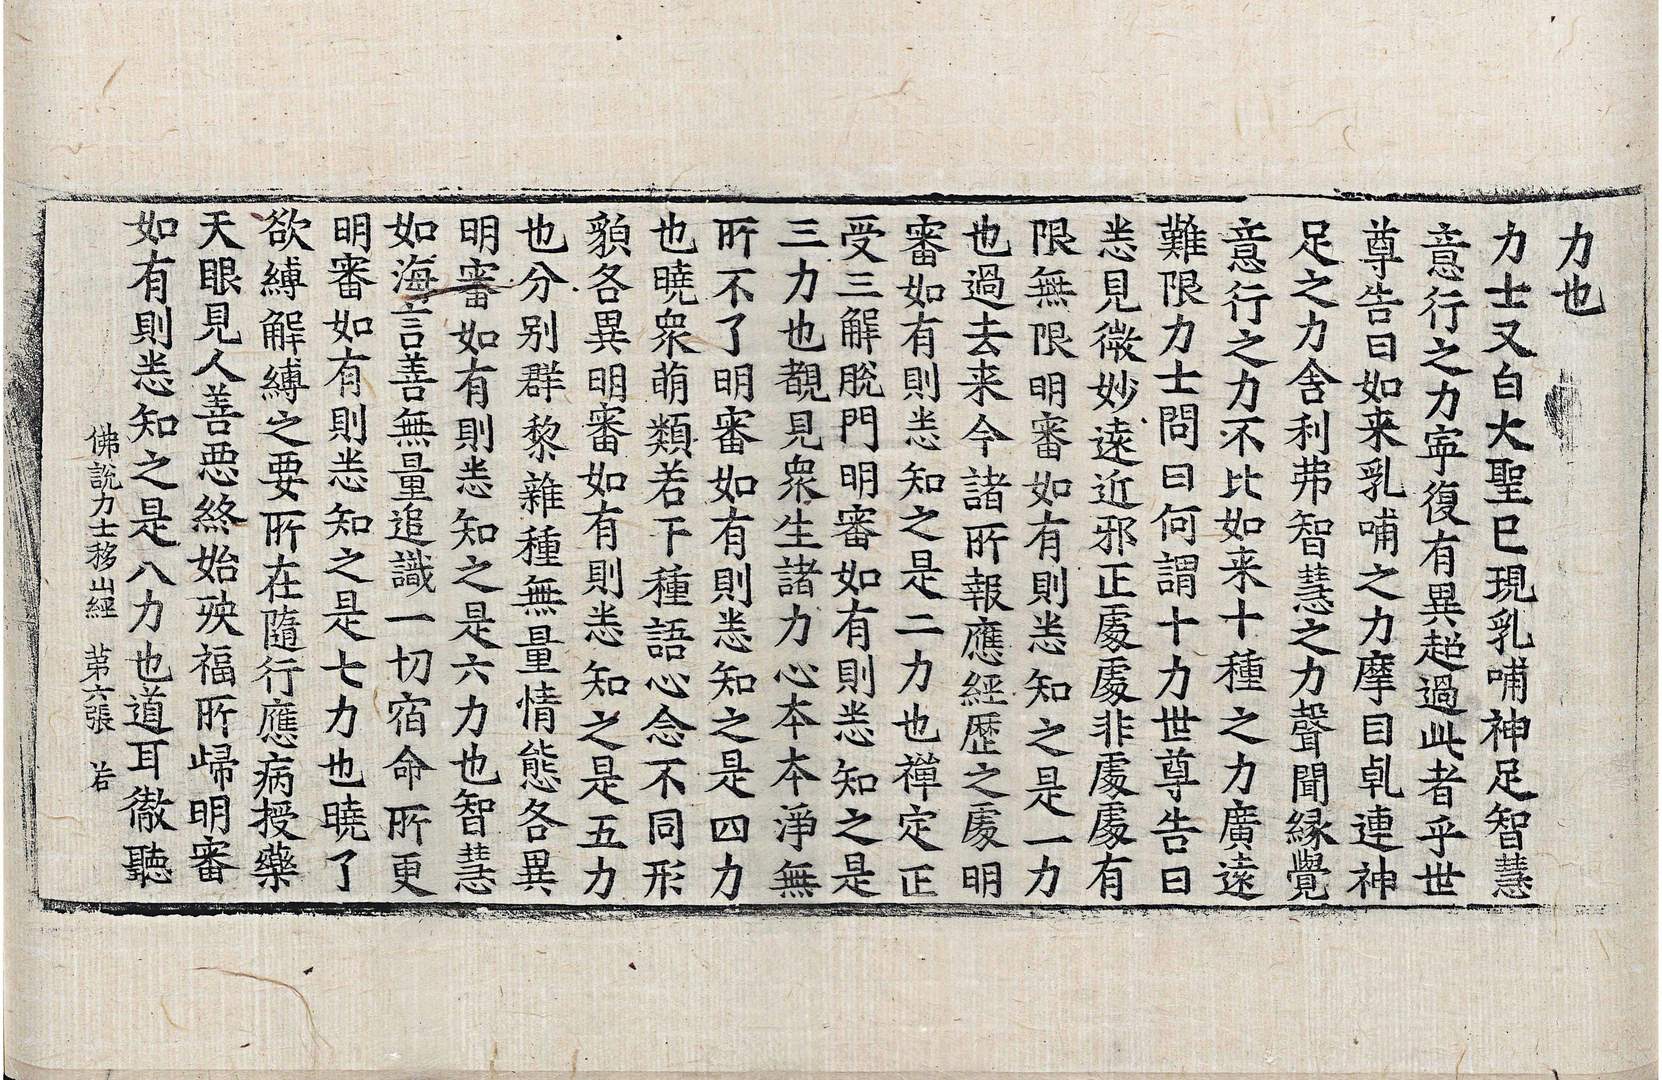 力也
力士又白大聖已現乳哺神足智慧
意行之力寜復有異超過此者乎世
尊告曰如来乳哺之力摩目乹連神
足之力舎利弗智慧之力聲聞緣覺
意行之力不比如来十種之力廣遠
難限力士問曰何謂十力世尊告曰
悉見微妙遠近邪正處處非處處有
限無限明審如有則悉知之是一力
也過去来今諸所報應經歷之處明
審如有則悉知之是二力也禪定正
受三解脫門明審如有則悉知之是
三力也覩見衆生諸力心本本淨無
所不了明審如有則悉知之是四力
也曉衆萌類若下種語心念不同形
貌各異明審如有則悉知之是五力
也分別群黎雜種無量情態各異
明審如有則悉知之是六力也智慧
如海言善無量追識一切宿命所更
明審如有則悉知之是七力也曉了
欲縛解縛之要所在隨行應病授藥
天眼見人善惡終始殃福所歸明審
如有則悉知之是八力也道耳徹聽
佛說力士移山經 第六張 若